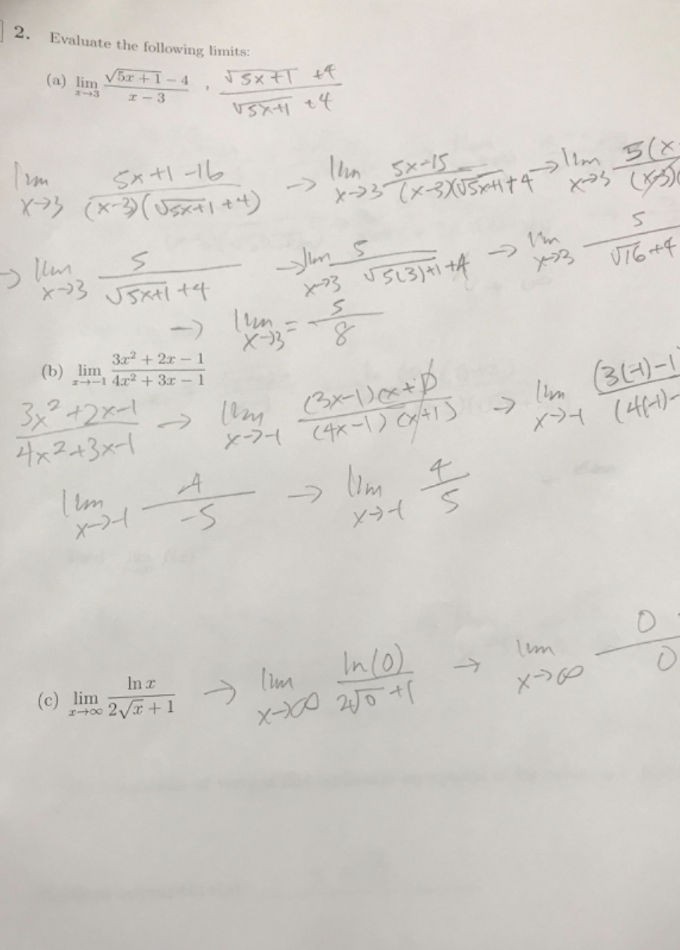 2. Evaluate the following limits:
(a) lim x→3 (√(5x + 1) − 4)/(x − 3) , (√(5x+1) +4)/(√(5x+1) +4)
lim x→3 (5x+1-16)/((x-3)(√(5x+1)+4)) → lim x→3 (5x-15)/((x-3)(√(5x+1)+4 → lim x→3 5(x/(x-3)(
→ lim x→3 5/(√(5x+1)+4) → lim x→3 5/(√(5(3)+1)+4) → lim x→3 5/(√16+4
→ lim x→3 = 5/8
(b) lim x→−1 (3x² + 2x − 1)/(4x² + 3x − 1)
(3x²+2x-1)/(4x²+3x-1) → lim x→-1 ((3x-1)(x+1))/((4x-1)(x+1)) → lim x→-1 (3(-1)-1/(4(-1)-
lim x→-1 -4/-5 → lim x→-1 4/5
(c) lim x→∞ (ln x)/(2√x + 1) → lim x→∞ ln(0)/(2√0 +1) → lim x→∞ 0/0